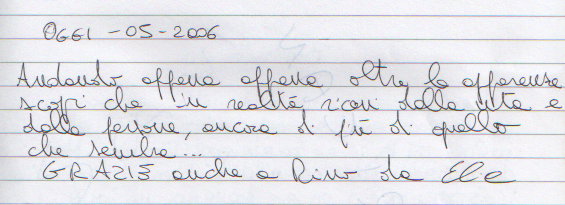 OGGI -05-2006
Andando appena appena oltre le apparenze
scopri che in realtà ricevi dalla vita e
dalle persone, ancora di più di quello
che sembra...
GRAZIE anche a Rino da Ele